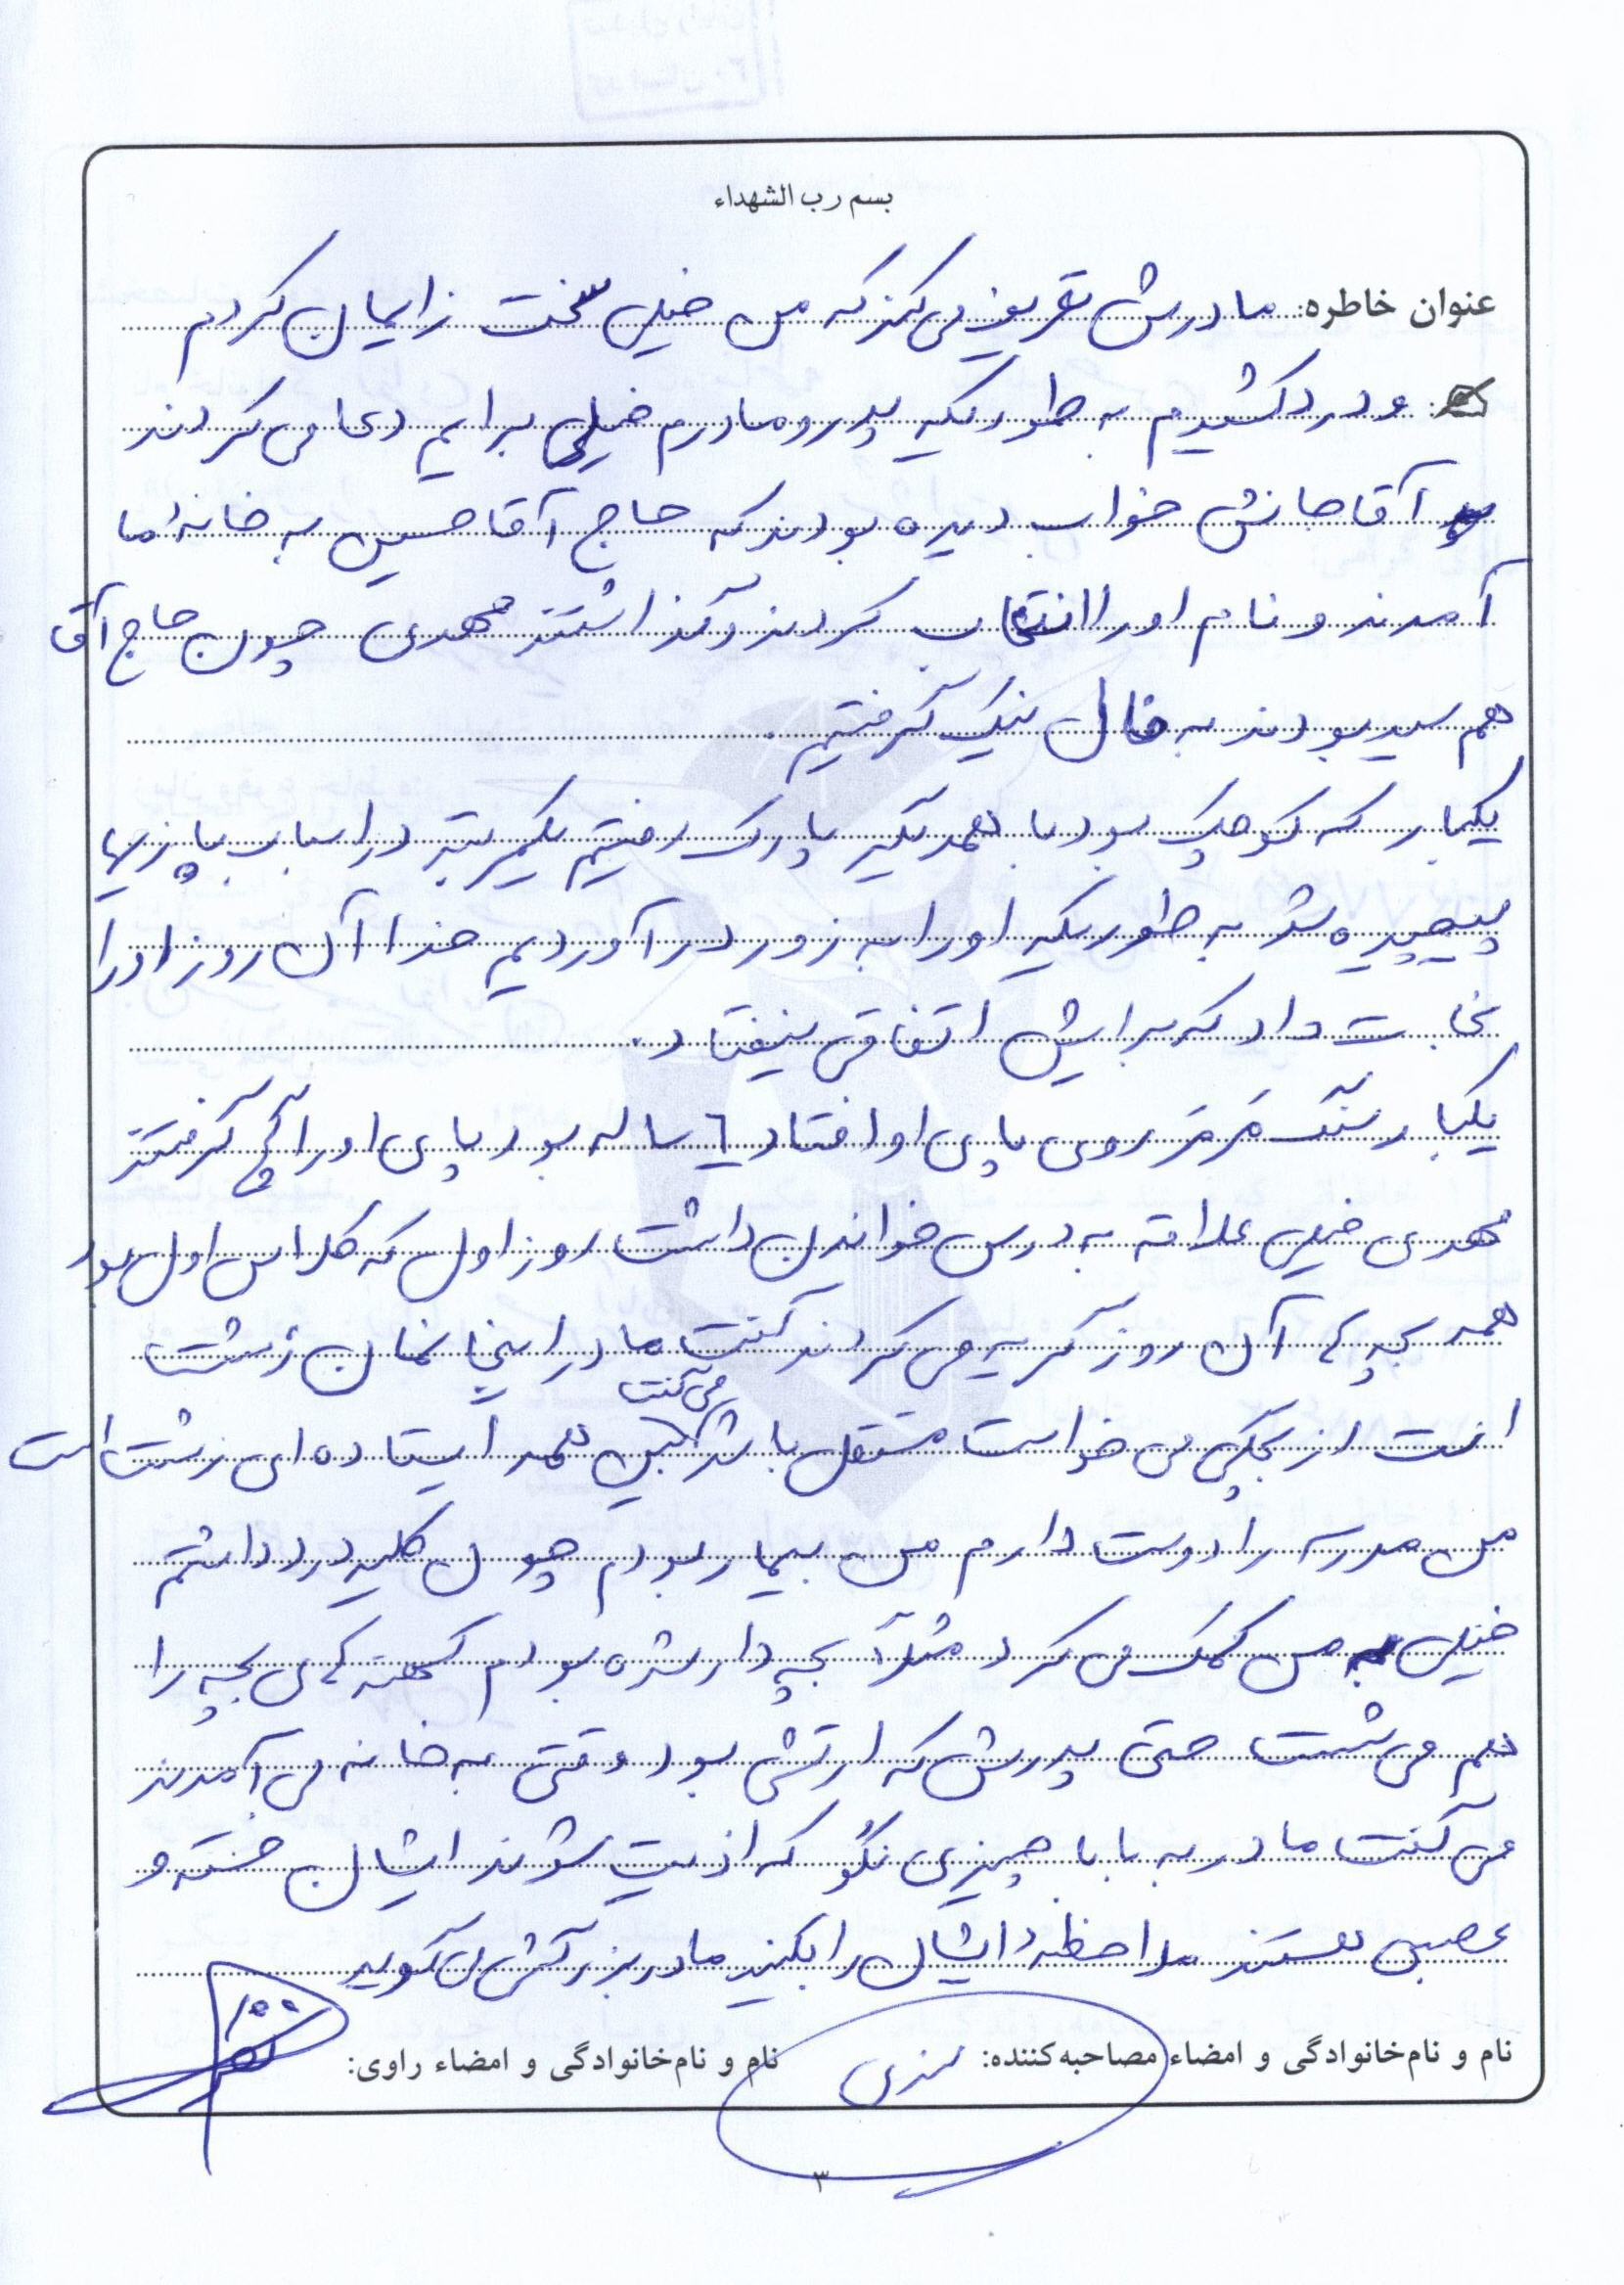 بسم رب الشهداء
عنوان خاطره: مادرش تعریف می کند که من خیلی سخت زایمان کردم
و درد کشیدم به طوریکه پدر و مادرم خیلی برایم دعا می کردند
آقاجانش خواب دیده بودند که حاج آقا حسین به خانه ما
آمدند و نام او را انتخاب کردند و گذاشتند مهدی چون حاج آقا
هم سید بودند به فال نیک گرفتیم.
یکبار که کوچک بود با همدیگر پارک رفتیم یکمرتبه در اسباب بازیها
پیچیده شد به طوریکه او را به زور در آوردیم خدا آن روز او را
نجات داد که برایش اتفاقی نیفتاد.
یکبار سنگ مَرمَر روی پای او افتاد ٦ ساله بود پای او را گچ گرفتند
مهدی خیلی علاقه به درس خواندن داشت روز اول که کلاس اول بود
همه بچه ها آن روز گریه می کردند گفت مادر اینجا نمان زشت
است از بچگی می خواست مستقل باشد می گفت ببین همه ایستاده ای زشت است
من مدرسه را دوست دارم من بیمار بودم چون کلیه درد داشتم
خیلی به من کمک می کرد مثلاً بچه دار شده بودم کهنه های بچه را
هم می شست حتی پدرش که ارتشی بود وقتی به خانه می آمدند
می گفت مادر به بابا چیزی نگو که اذیت شوند ایشان خسته و
عصبی هستند ملاحظه ایشان را بکنید مادربزرگش می گوید
نام و نام‌خانوادگی و امضاء مصاحبه‌کننده:
نام و نام‌خانوادگی و امضاء راوی:
۳